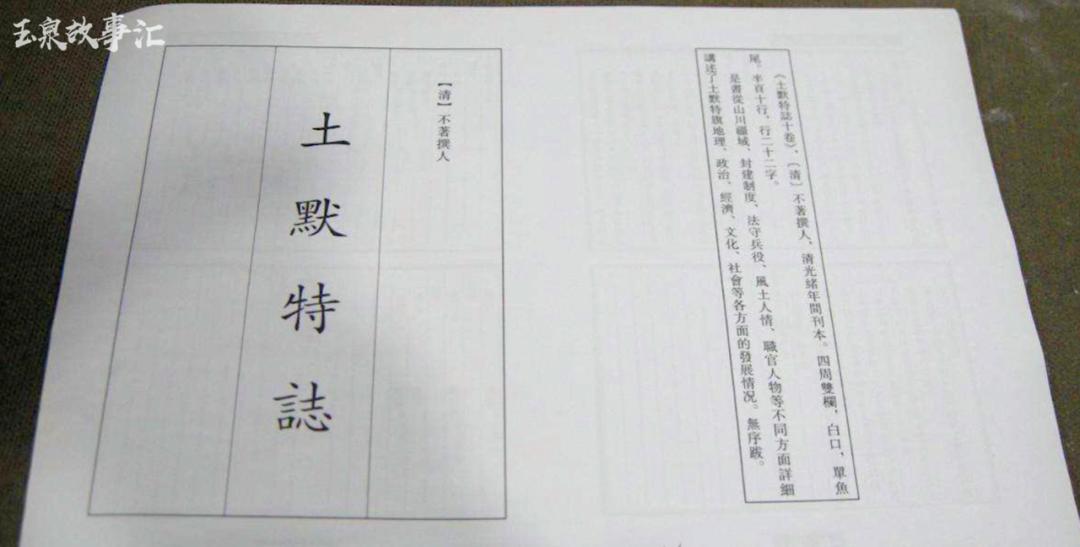 玉泉故事汇
《土默特誌十卷》，〔清〕不著撰人，清光緒年間刊本。四周雙欄，白口，單魚
尾。半頁十行，行二十二字。
是書從山川疆域、封建制度、法守兵役、風土人情、職官人物等不同方面詳細
講述了土默特旗地理、政治、經濟、文化、社會等各方面的發展情况。無序跋。
【清】不著撰人
土默特誌